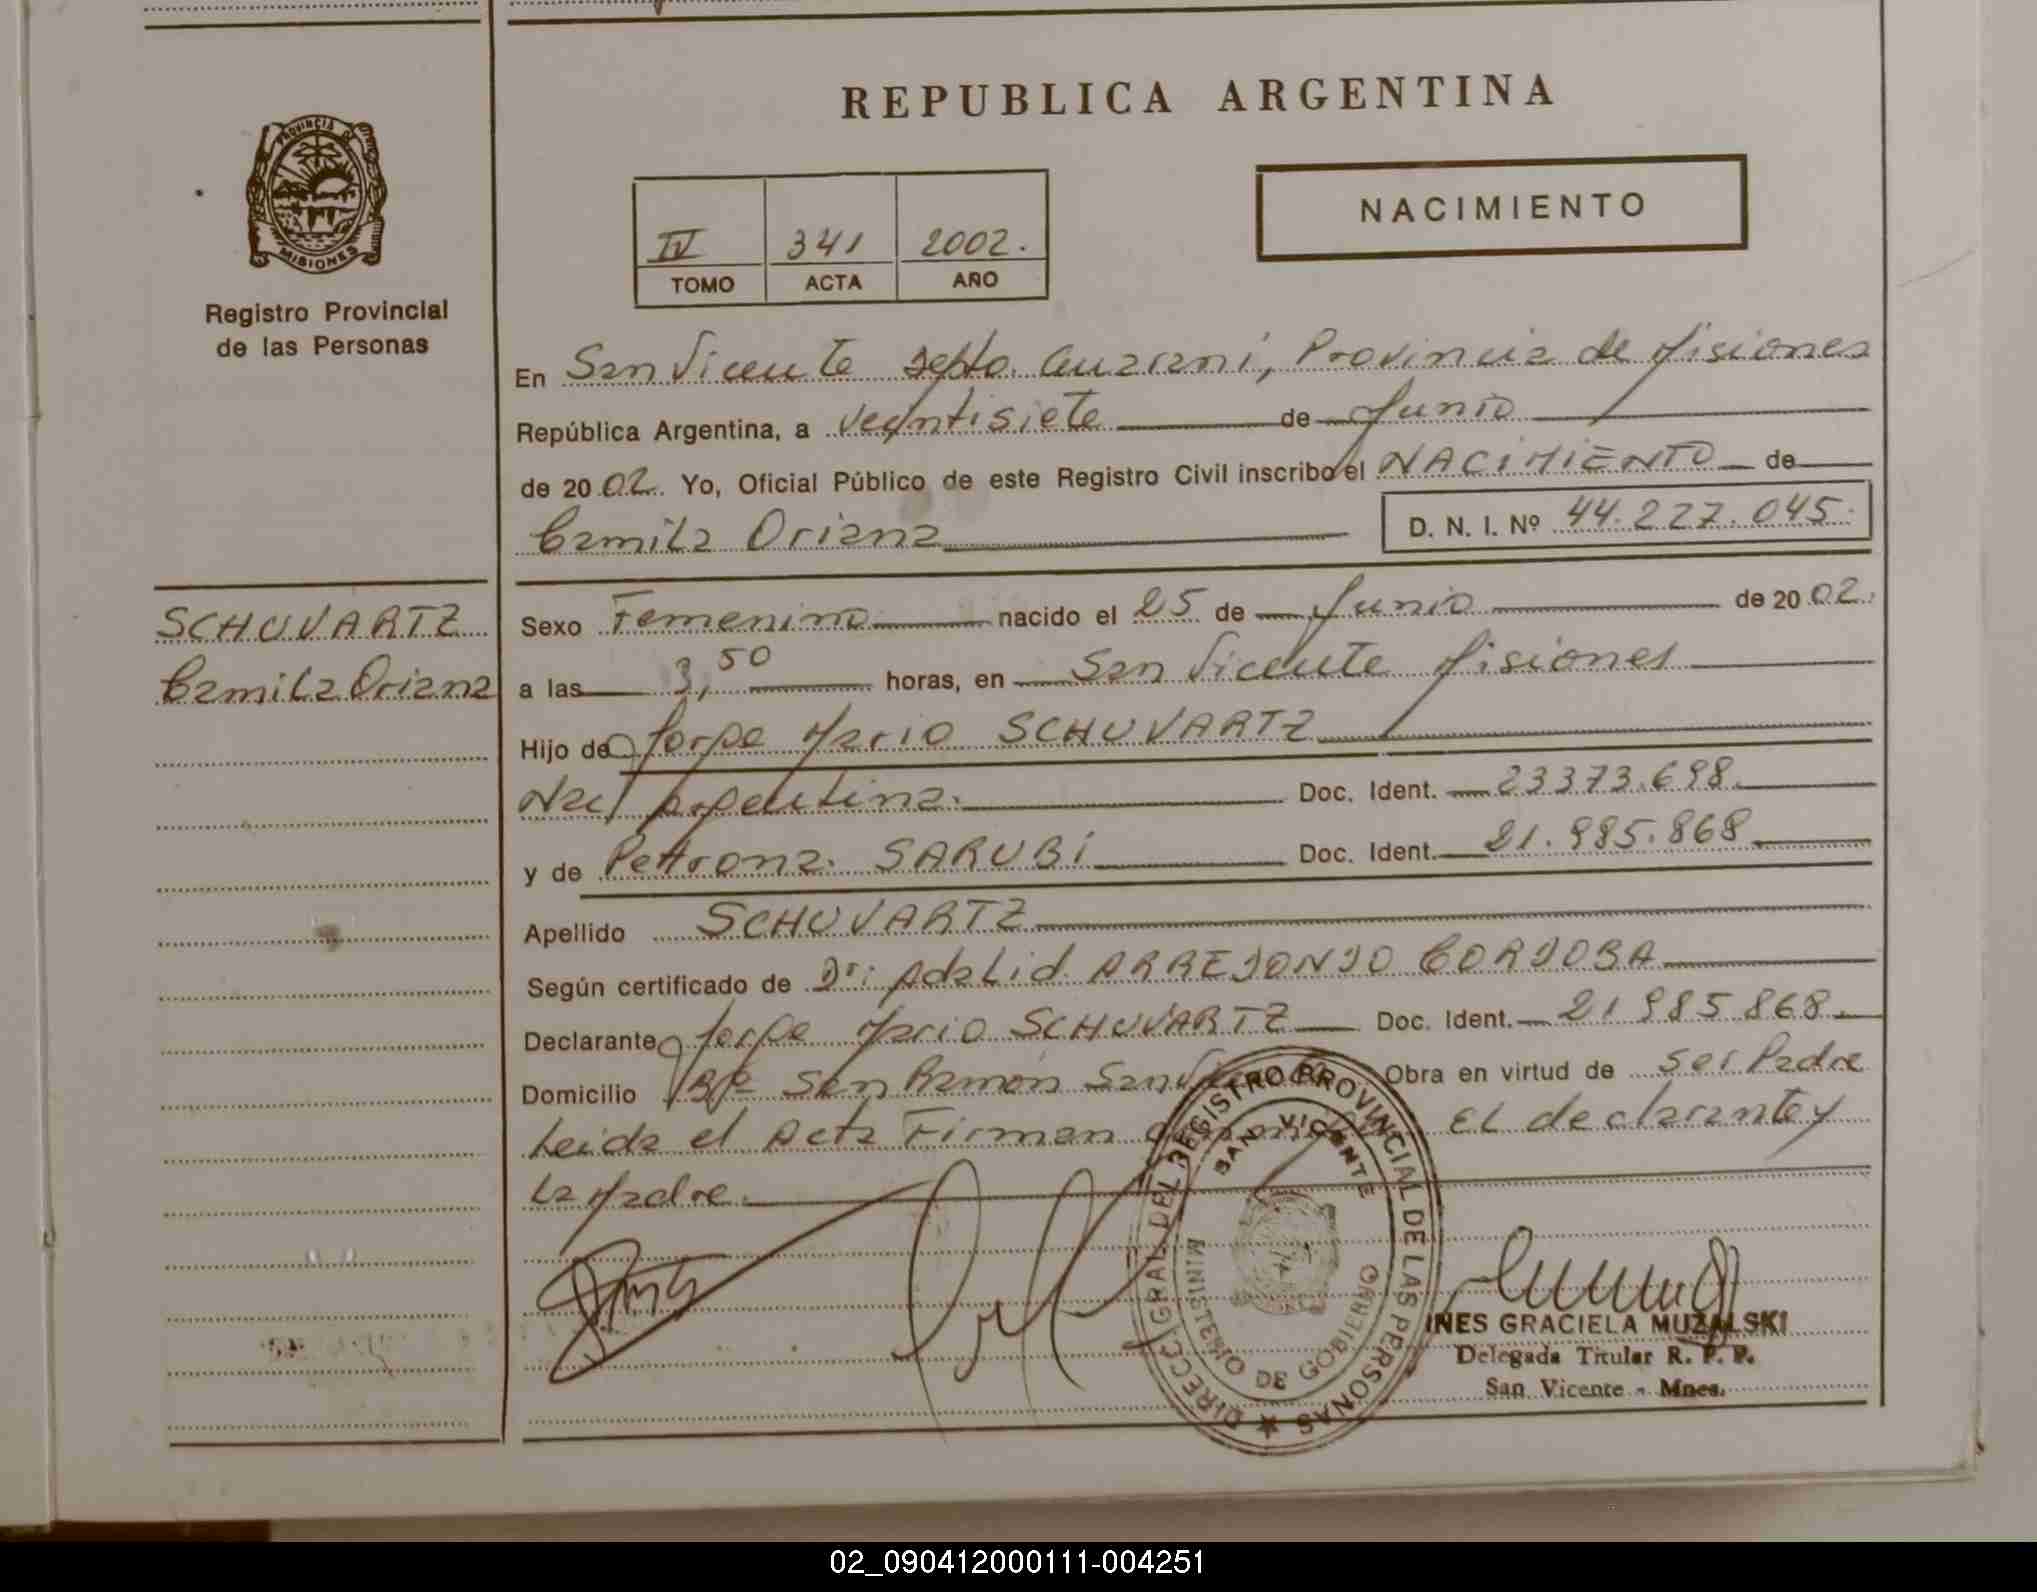 REPUBLICA ARGENTINA
PROVINCIA DE
MISIONES
Registro Provincial
de las Personas
IV 341 2002.
TOMO ACTA AÑO
NACIMIENTO
En San Vicente Depto. Guaraní, Provincia de Misiones
República Argentina, a veintisiete de Junio
de 2002. Yo, Oficial Público de este Registro Civil inscribo el NACIMIENTO de
Camila Oriana
D. N. I. Nº 44.227.045.
SCHUVARTZ
Camila Oriana
Sexo Femenino nacido el 25 de Junio de 2002.
a las 3,50 horas, en San Vicente Misiones
Hijo de Jorge Mario SCHUVARTZ
Nac Argentina. Doc. Ident. 23373.698.
y de Petrona. SARUBI Doc. Ident. 21.985.868
Apellido SCHUVARTZ
Según certificado de Dr: Adalid ARREDONDO CORDOBA
Declarante Jorge Mario SCHUVARTZ Doc. Ident. 21985868.
Domicilio Bº San Ramón San Obra en virtud de ser Padre
Leida el Acta Firman El declarante y
La Madre.
DIRECC. GRAL. DEL REGISTRO PROVINCIAL DE LAS PERSONAS
SAN VICENTE
MINISTERIO DE GOBIERNO
INES GRACIELA MUZALSKI
Delegada Titular R. P. P.
San Vicente - Mnes.
02_090412000111-004251